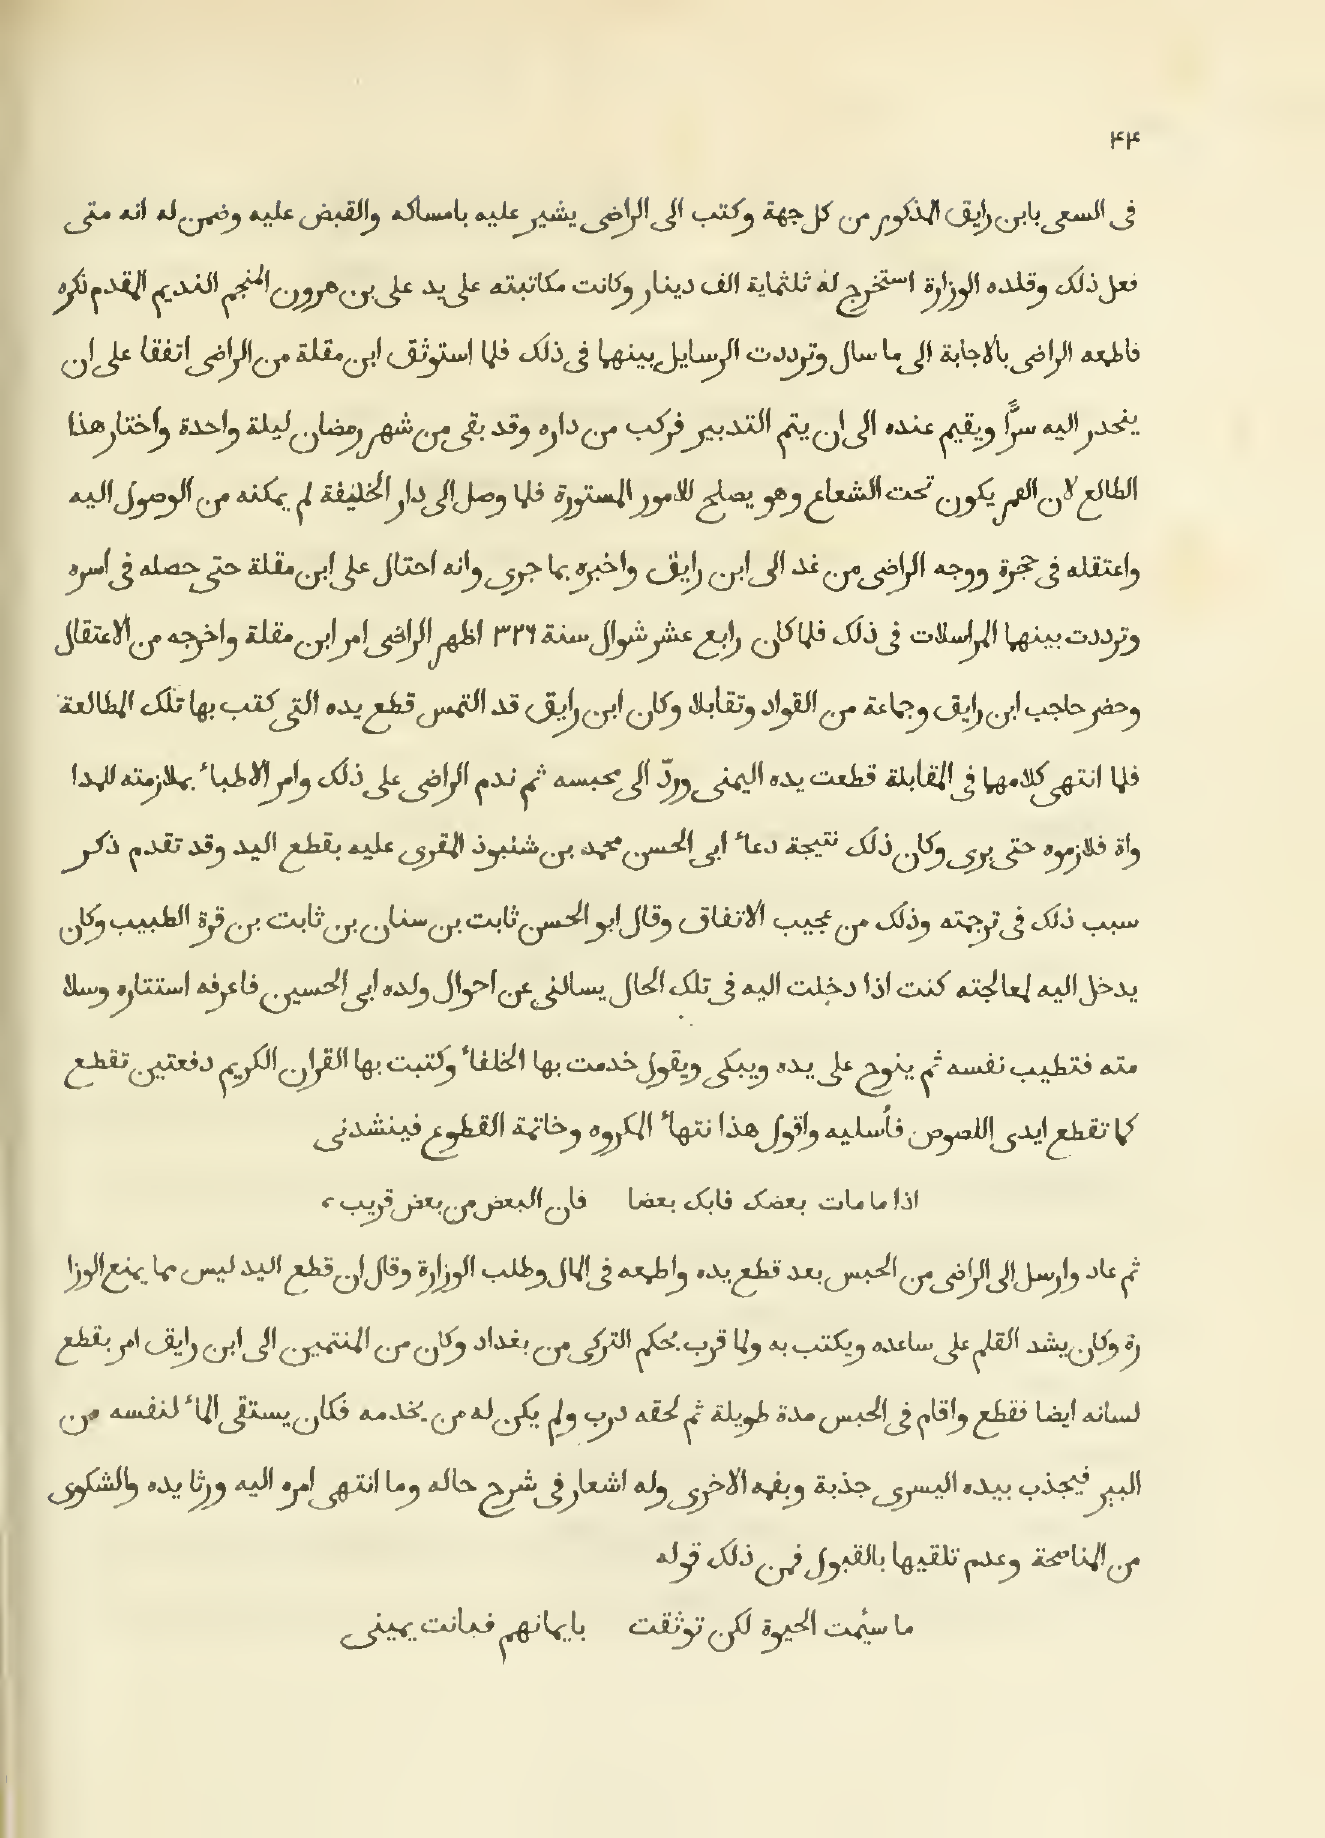 ۴۴
فى السعى بابن رايق المذكور من كل جهة وكتب الى الراضى يشير عليه بامساكه والقبض عليه وضمن له انه متى
فعل ذلك وقلده الوزارة استخرج له ثلثماية الف دينار وكانت مكاتبته على يد على بن هرون المنجم النديم المقدم ذكره
فاطمعه الراضى بالاجابة الى ما سال وترددت الرسايل بينهما فى ذلك فلما استوثق ابن مقلة من الراضى اتفقا على ان
ينحدر اليه سرًّا ويقيم عنده الى ان يتم التدبير فركب من داره وقد بقى من شهر رمضان ليلة واحدة واختار هذا
الطالع لان القمر يكون تحت الشعاع وهو يصلح للامور المستورة فلما وصل الى دار الخليفة لم يمكنه من الوصول اليه
واعتقله فى حجرة ووجه الراضى من غد الى ابن رايق واخبره بما جرى وانه احتال على ابن مقلة حتى حصله فى اسره
وترددت بينهما المراسلات فى ذلك فلما كان رابع عشر شوال سنة ٣٢٦ اظهر الراضى امر ابن مقلة واخرجه من الاعتقال
وحضر حاجب ابن رايق وجماعة من القواد وتقابلا وكان ابن رايق قد التمس قطع يده التى كتب بها تلك المطالعة
فلما انتهى كلامهما فى المقابلة قطعت يده اليمنى وردّ الى محبسه ثم ندم الراضى على ذلك وامر الاطباء بملازمته للمدا
واة فلازموه حتى برى وكان ذلك نتيجة دعاء ابى الحسن محمد بن شنبوذ المقرى عليه بقطع اليد وقد تقدم ذكر
سبب ذلك فى ترجمته وذلك من عجيب الاتفاق وقال ابو الحسن ثابت بن سنان بن ثابت بن قرة الطبيب وكان
يدخل اليه لمعالجته كنت اذا دخلت اليه فى تلك الحال يسالنى عن احوال ولده ابى الحسين فاعرفه استتاره وسلا
مته فتطيب نفسه ثم ينوح على يده ويبكى ويقول خدمت بها الخلفاء وكتبت بها القران الكريم دفعتين تقطع
كما تقطع ايدى اللصوص فأسليه واقول هذا نتهاء المكروه وخاتمة القطوع فينشدنى
اذا ما مات بعضك فابك بعضا فان البعض من بعض قريب،
ثم عاد وارسل الى الراضى من الحبس بعد قطع يده واطمعه فى المال وطلب الوزارة وقال ان قطع اليد ليس مما يمنع الوزا
رة وكان يشد القلم على ساعده ويكتب به ولما قرب بجكم التركى من بغداد وكان من المنتمين الى ابن رايق امر بقطع
لسانه ايضا فقطع واقام فى الحبس مدة طويلة ثم لحقه درب ولم يكن له من يخدمه فكان يستقى الماء لنفسه من
البير فيجذب بيده اليسرى جذبة وبفمه الاخرى وله اشعار فى شرح حاله وما انتهى امره اليه ورثا يده والشكوى
من المناصحة وعدم تلقيها بالقبول فمن ذلك قوله
ما سئمت الحيوة لكن توثقت بايمانهم فبانت يمينى